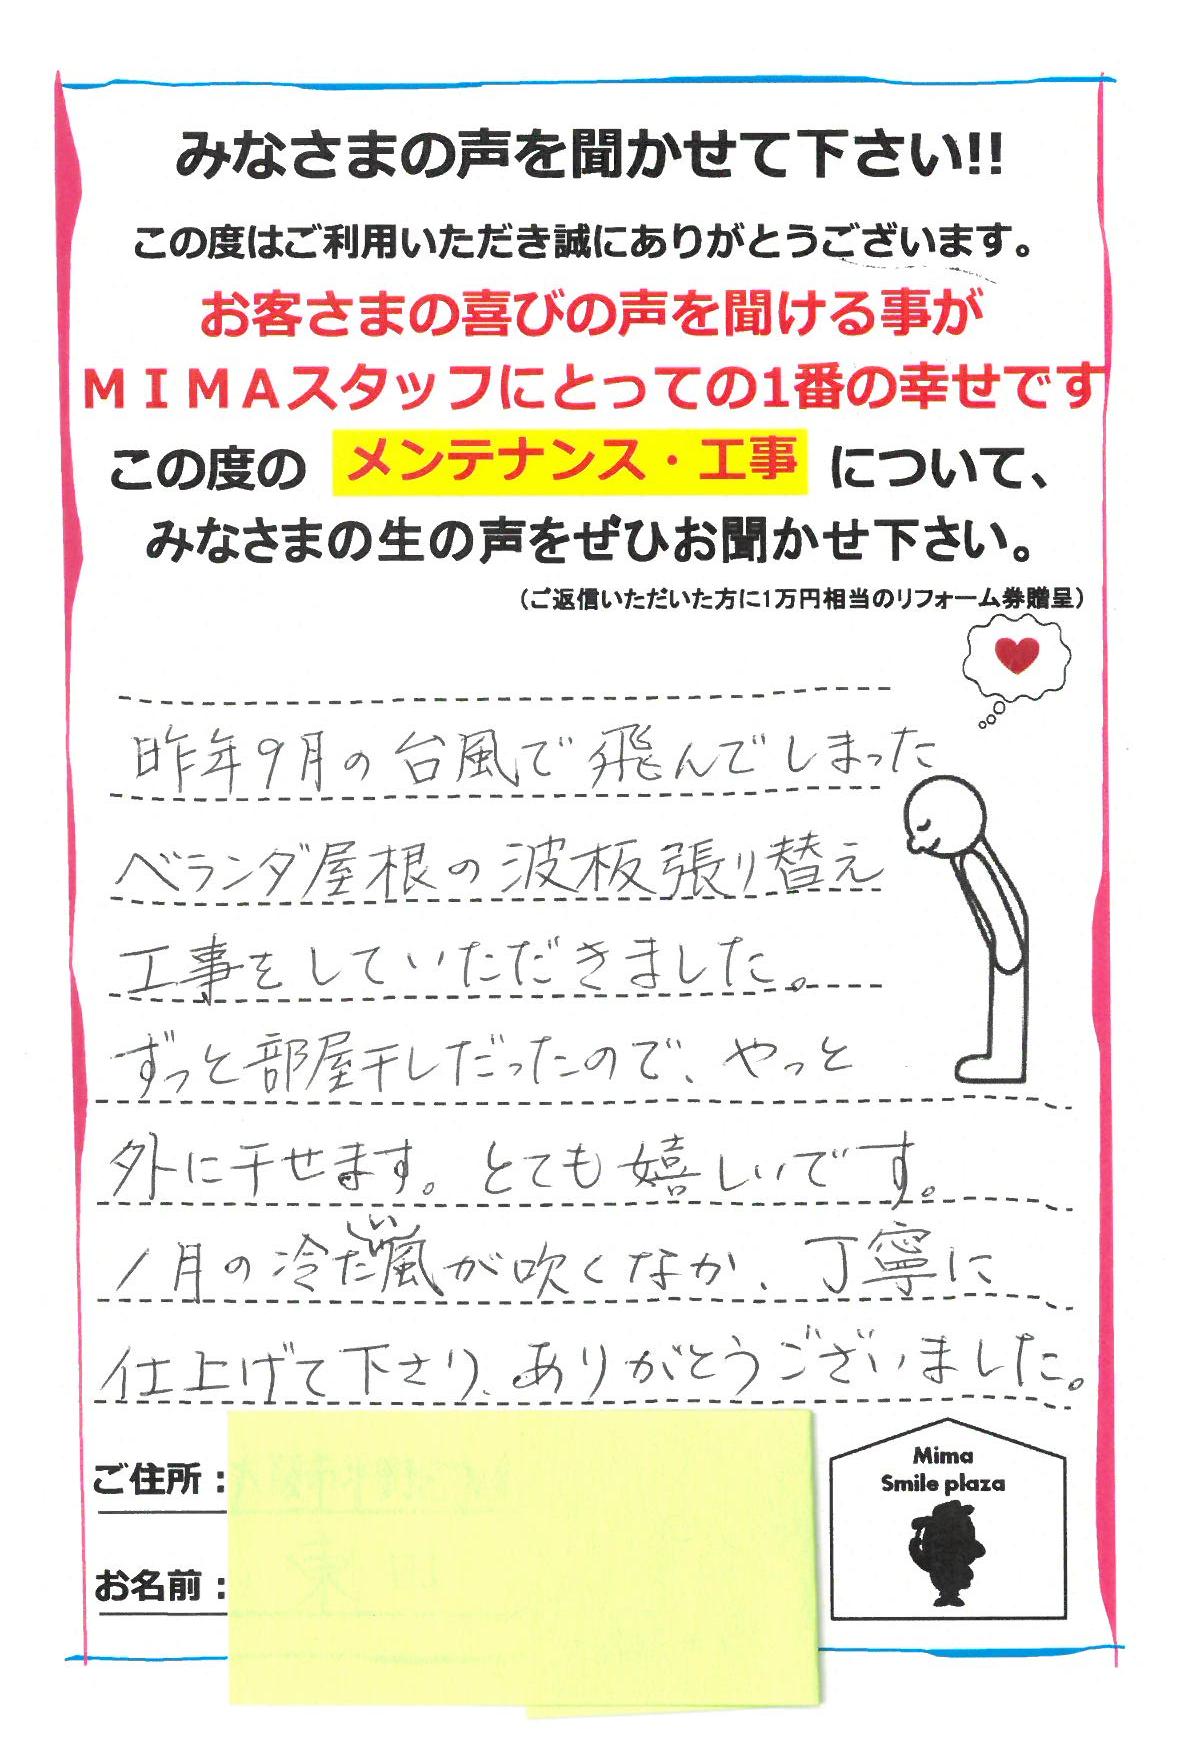 みなさまの声を聞かせて下さい!!
この度はご利用いただき誠にありがとうございます。
お客さまの喜びの声を聞ける事が
MIMAスタッフにとっての1番の幸せです
この度の メンテナンス・工事 について、
みなさまの生の声をぜひお聞かせ下さい。
(ご返信いただいた方に1万円相当のリフォーム券贈呈)
昨年9月の台風で飛んでしまった
ベランダ屋根の波板張り替え
工事をしていただきました。
ずっと部屋干しだったので、やっと
外に干せます。とても嬉しいです。
1月の冷たい風が吹くなか、丁寧に
仕上げて下さり、ありがとうございました。
ご住所:
お名前:
Mima
Smile plaza